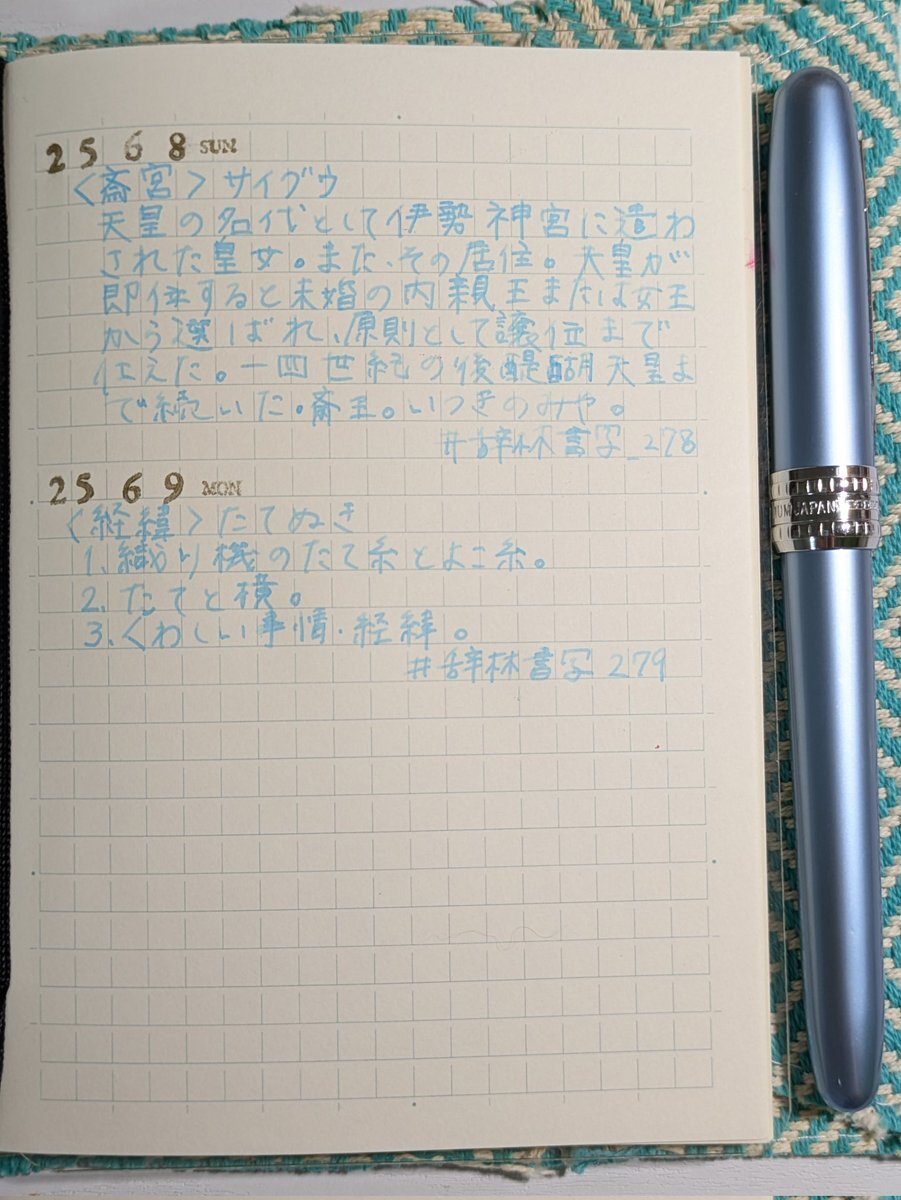 25 6 8 SUN
〈斎宮〉サイグウ
天皇の名代として伊勢神宮に遣わ
された皇女。また、その居住。天皇が
即位すると未婚の内親王または女王
から選ばれ、原則として譲位まで
仕えた。十四世紀の後醍醐天皇ま
で続いた。斎王。いつきのみや。
#辞林書写_278
25 6 9 MON
〈経緯〉たてぬき
1.織り機のたて糸とよこ糸。
2.たてと横。
3.くわしい事情.経緯。
#辞林書写279
JAPAN